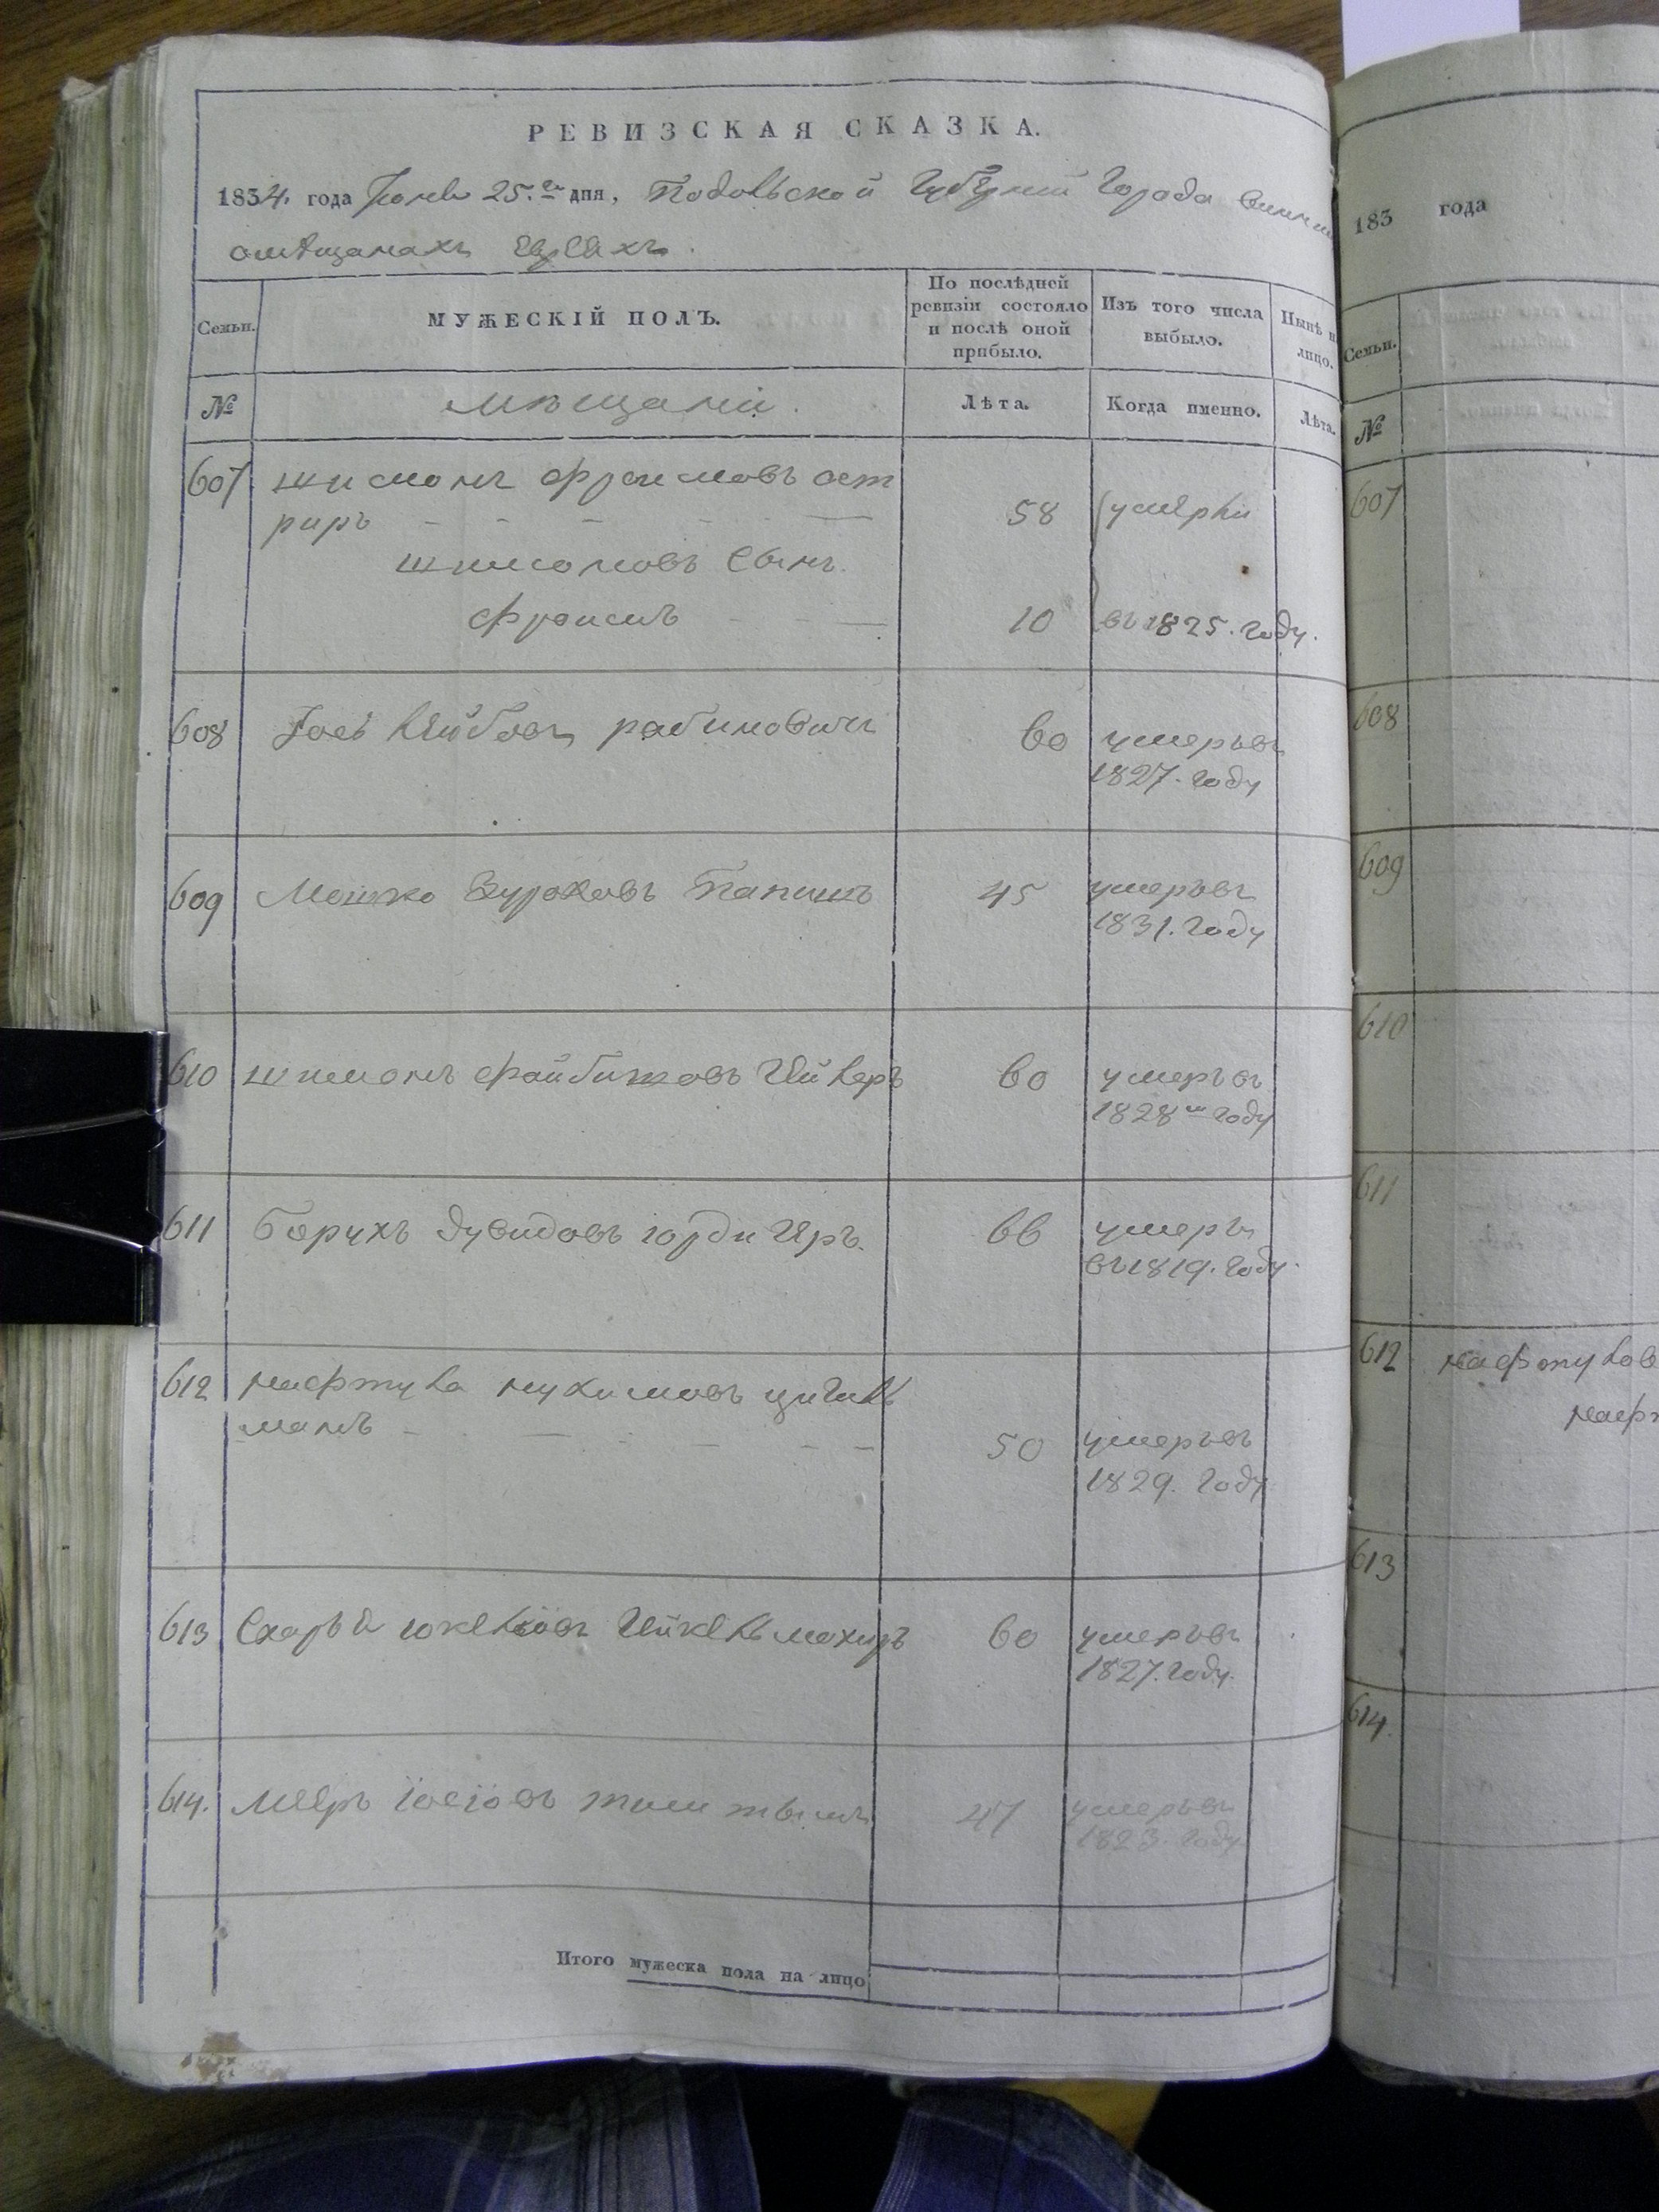 РЕВИЗСКАЯ СКАЗКА.
1834. года Іюня 25.го дня, Подольской Губерніи Города Винни
омѣщанахъ Евреяхъ.
Семьи. МУЖЕСКІЙ ПОЛЪ. По послѣдней ревизіи состояло и послѣ оной прибыло. Изъ того числа выбыло. Нынѣ н лицо.
№ Мѣщани. Лѣта. Когда именно. Лѣта.
607 шимонъ фроимовъ ост
риръ 58 умерли
шимоновъ Сынъ.
фроимъ 10 въ 1825. году.
608 Іось Лейбовъ рабиновичъ 60 умеръвъ
1827. году
609 Мошко Зуроховъ Папишъ 45 умеръвъ
1831. году
610 шимонъ файбишовъ 60 умеръвъ
1828 году
611 Борухъ дувидовъ 66 умеръ
въ1819. году.
612 нафтула нухимовъ
манъ 50 умеръвъ
1829. году
613 60 умеръвъ
1827. году.
614. Мееръ 47 умеръвъ
1823. году
Итого мужеска пола на лицо
183 года
Семьи.
№
607
608
609
610
611
612 нафтулов
нафт
613
614.